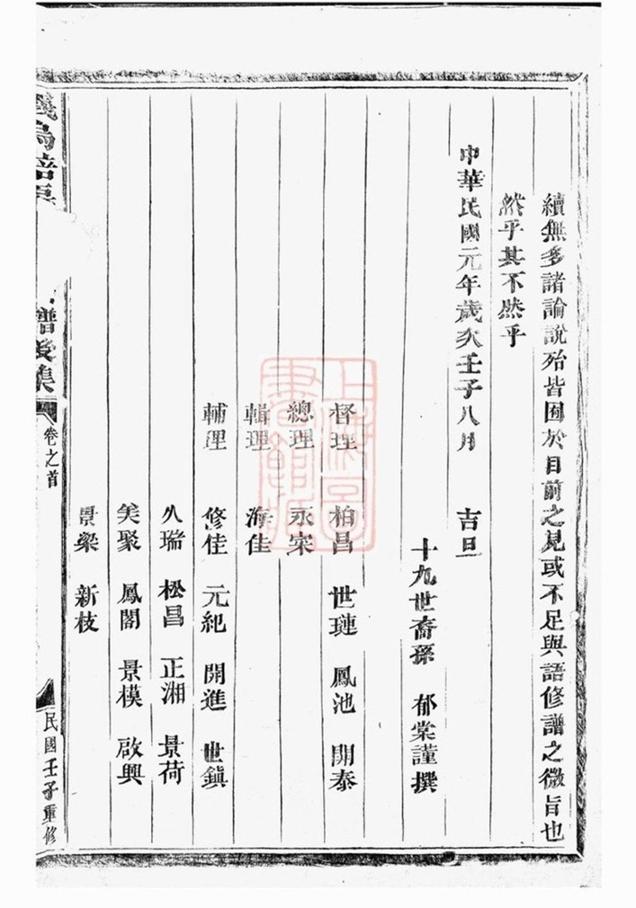 續無多諸論說殆皆囿於目前之見或不足與語修譜之微旨也
然乎其不然乎
中華民國元年歲次壬子八月 吉旦
十九世裔孫 郁棠謹撰
督理 柏昌 世璉 鳳池 開泰
總理 永宋
輯理 海佳
輔理 修佳 元紀 開進 世鎮
久瑞 松昌 正湘 景荷
美聚 鳳閣 景模 啟興
景梁 新枝
譜後集 卷之首 民國壬子重修